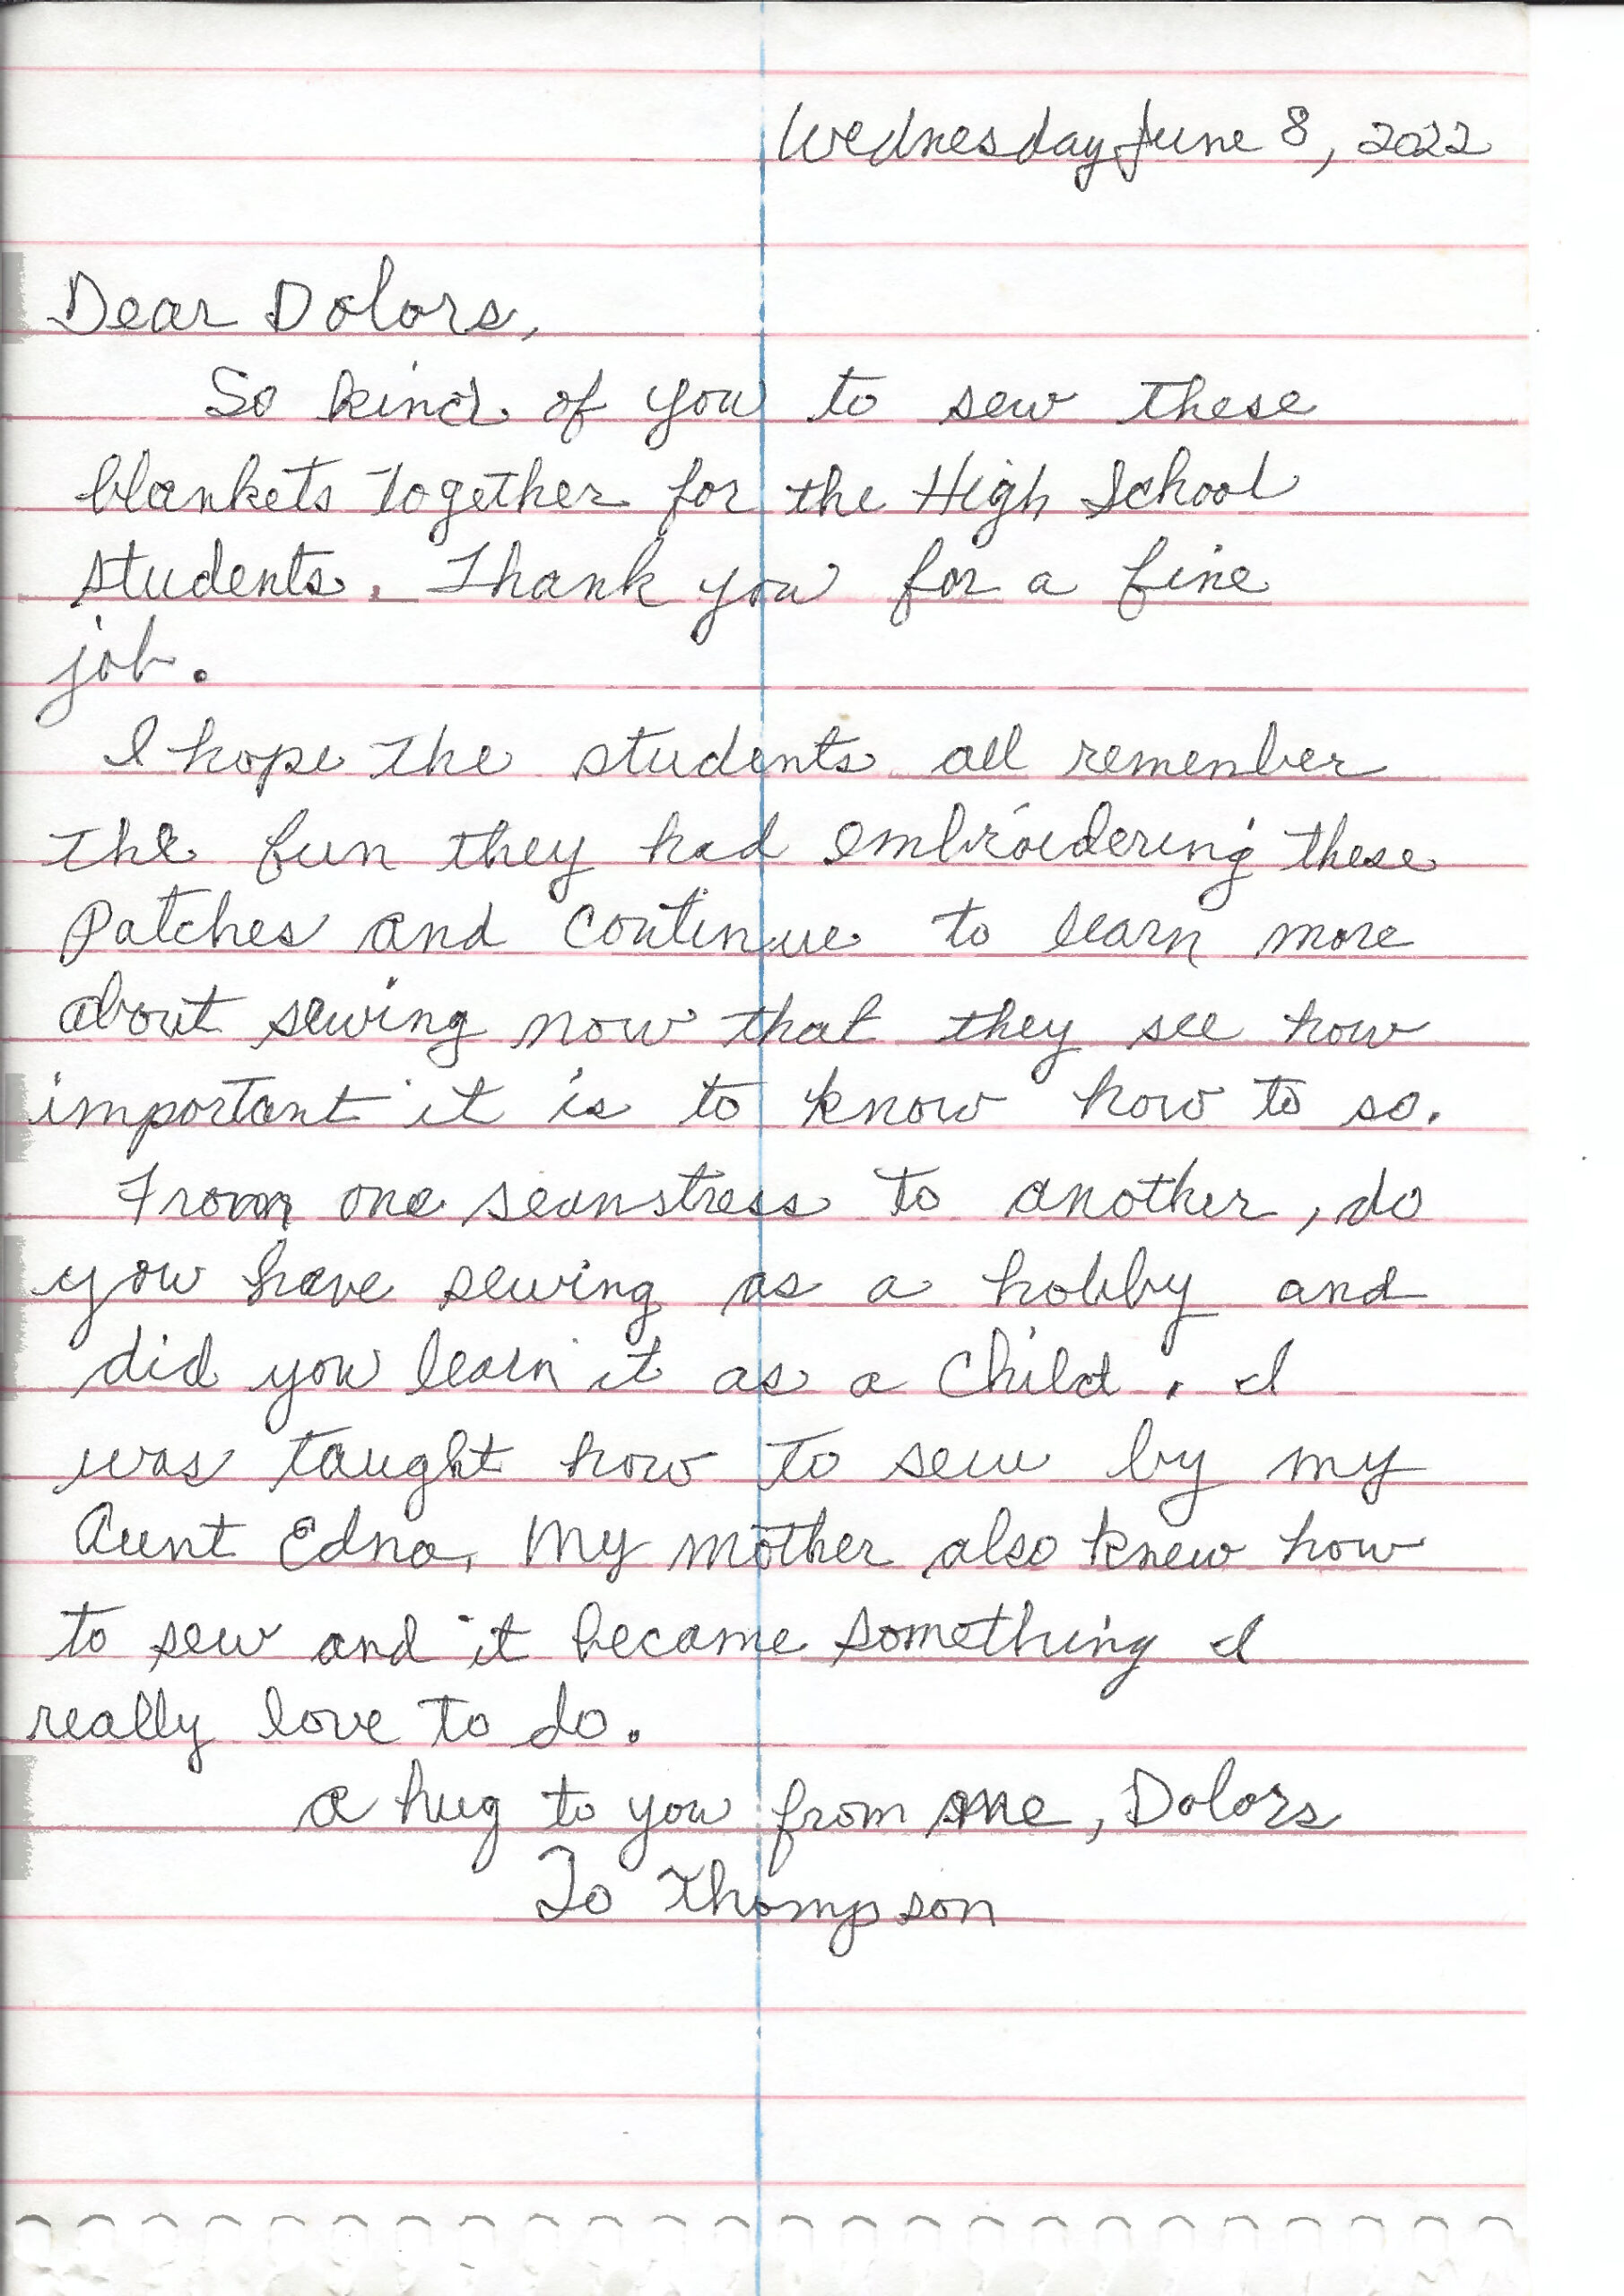 Wednesday June 8, 2022
Dear Dolors,
So kind of you to sew these
blankets together for the High School
students. Thank you for a fine
job.
I hope the students all remenber
the fun they had embroidering these
Patches and continue to learn more
about sewing now that they see how
important it is to know how to so.
From one seanstress to another, do
you have sewing as a hobby and
did you learn it as a child. I
was taught how to sew by my
Aunt Edna. My mother also knew how
to sew and it became something I
really love to do.
A hug to you from me, Dolors
Jo Thompson